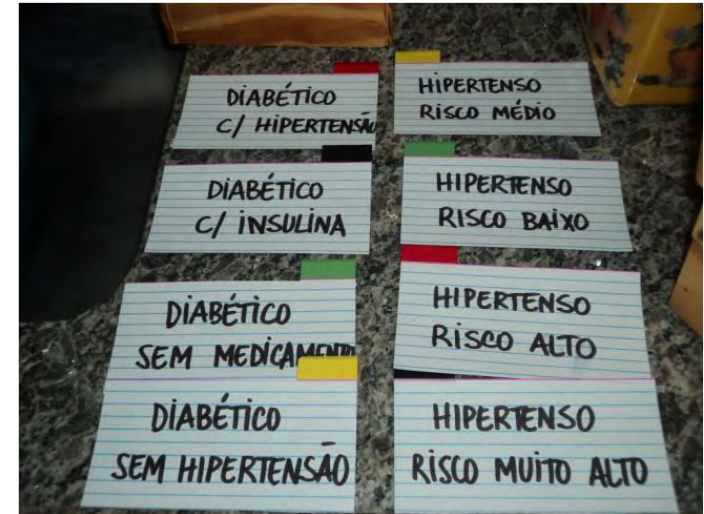 DIABÉTICO
C/ HIPERTENSÃO
DIABÉTICO
C/ INSULINA
DIABÉTICO
SEM MEDICAMENTO
DIABÉTICO
SEM HIPERTENSÃO
HIPERTENSO
RISCO MÉDIO
HIPERTENSO
RISCO BAIXO
HIPERTENSO
RISCO ALTO
HIPERTENSO
RISCO MUITO ALTO